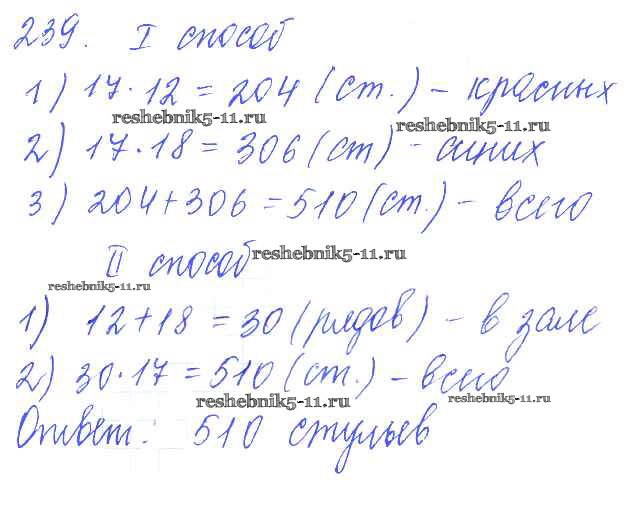 239. I способ
1) 17·12 = 204 (ст.) - красных
reshebnik5-11.ru reshebnik5-11.ru
2) 17·18 = 306 (ст) - синих
3) 204+306 = 510 (ст.) - всего
II способ reshebnik5-11.ru
reshebnik5-11.ru
1) 12+18 = 30 (рядов) - в зале
2) 30·17 = 510 (ст.) - всего
reshebnik5-11.ru reshebnik5-11.ru
Ответ: 510 стульев